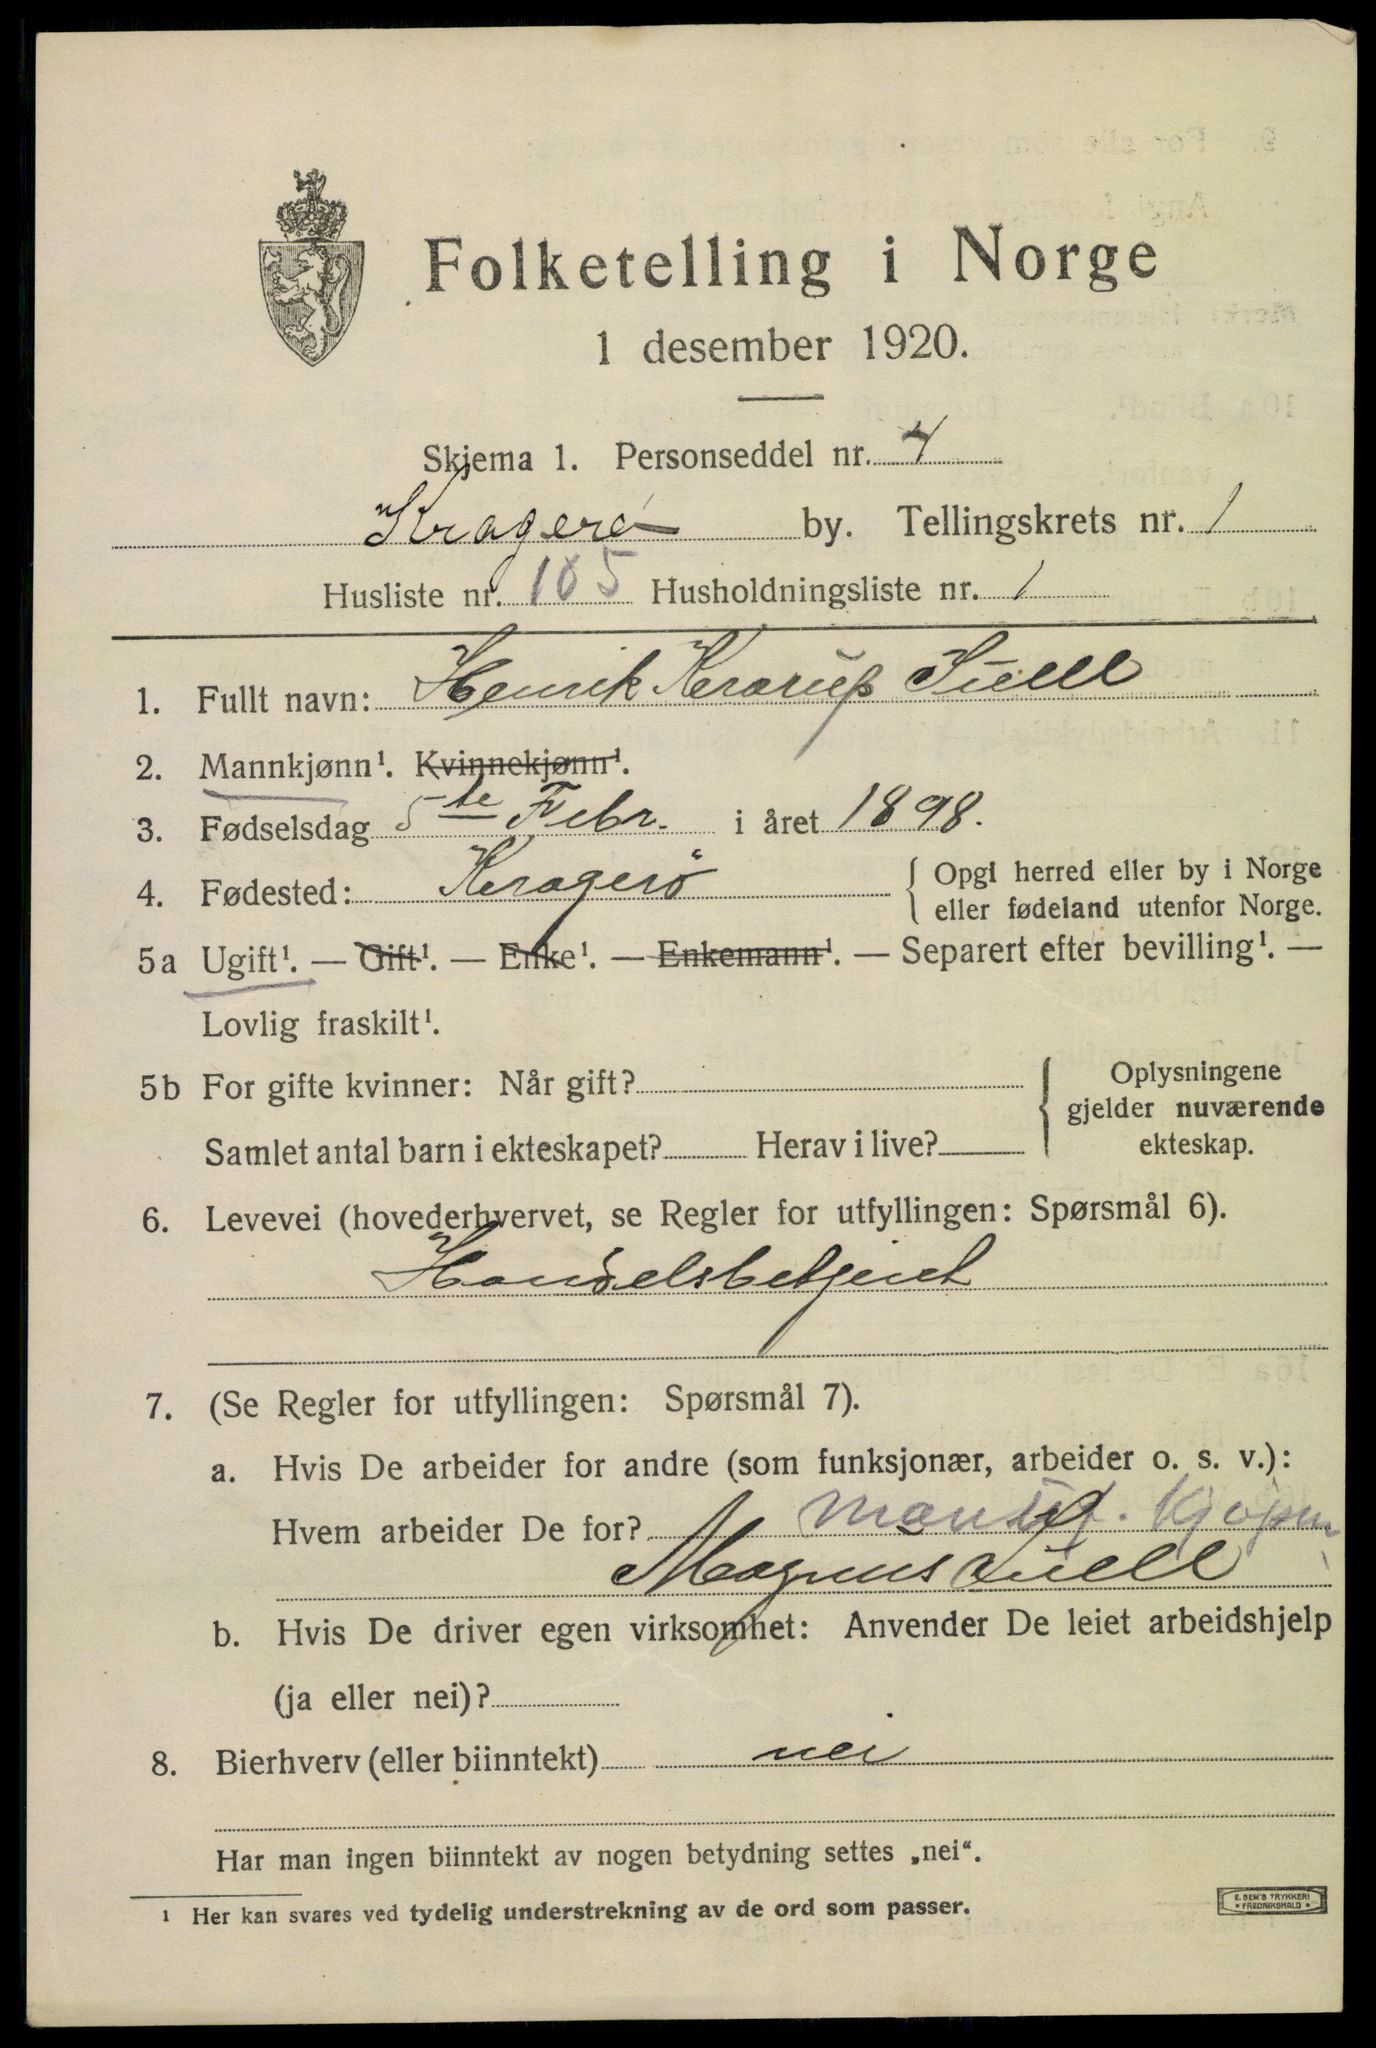 Folketelling i Norge
1 desember 1920.
Skjema 1. Personseddel nr. 4
Kragerø by. Tellingskrets nr. 1
Husliste nr. 105 Husholdningsliste nr. 1
1. Fullt navn: Henrik Krarup Tuell
2. Mannkjønn¹. Kvinnekjønn¹.
3. Fødselsdag 5te Febr. i året 1898.
4. Fødested: Kragerö { Opgi herred eller by i Norge
eller fødeland utenfor Norge.
5a Ugift¹. — Gift¹. — Enke¹. — Enkemann¹. — Separert efter bevilling¹. —
Lovlig fraskilt¹.
5b For gifte kvinner: Når gift? { Oplysningene
gjelder nuværende
Samlet antal barn i ekteskapet? Herav i live? ekteskap.
6. Levevei (hovederhvervet, se Regler for utfyllingen: Spørsmål 6).
Handelsbetjent
7. (Se Regler for utfyllingen: Spørsmål 7).
a. Hvis De arbeider for andre (som funksjonær, arbeider o. s. v.):
Hvem arbeider De for?
Magnus Tuell
b. Hvis De driver egen virksomhet: Anvender De leiet arbeidshjelp
(ja eller nei)?
8. Bierhverv (eller biinntekt) nei
Har man ingen biinntekt av nogen betydning settes „nei“.
¹ Her kan svares ved tydelig understrekning av de ord som passer.
E. SEM'S TRYKKERI
* FREDRIKSHALD *